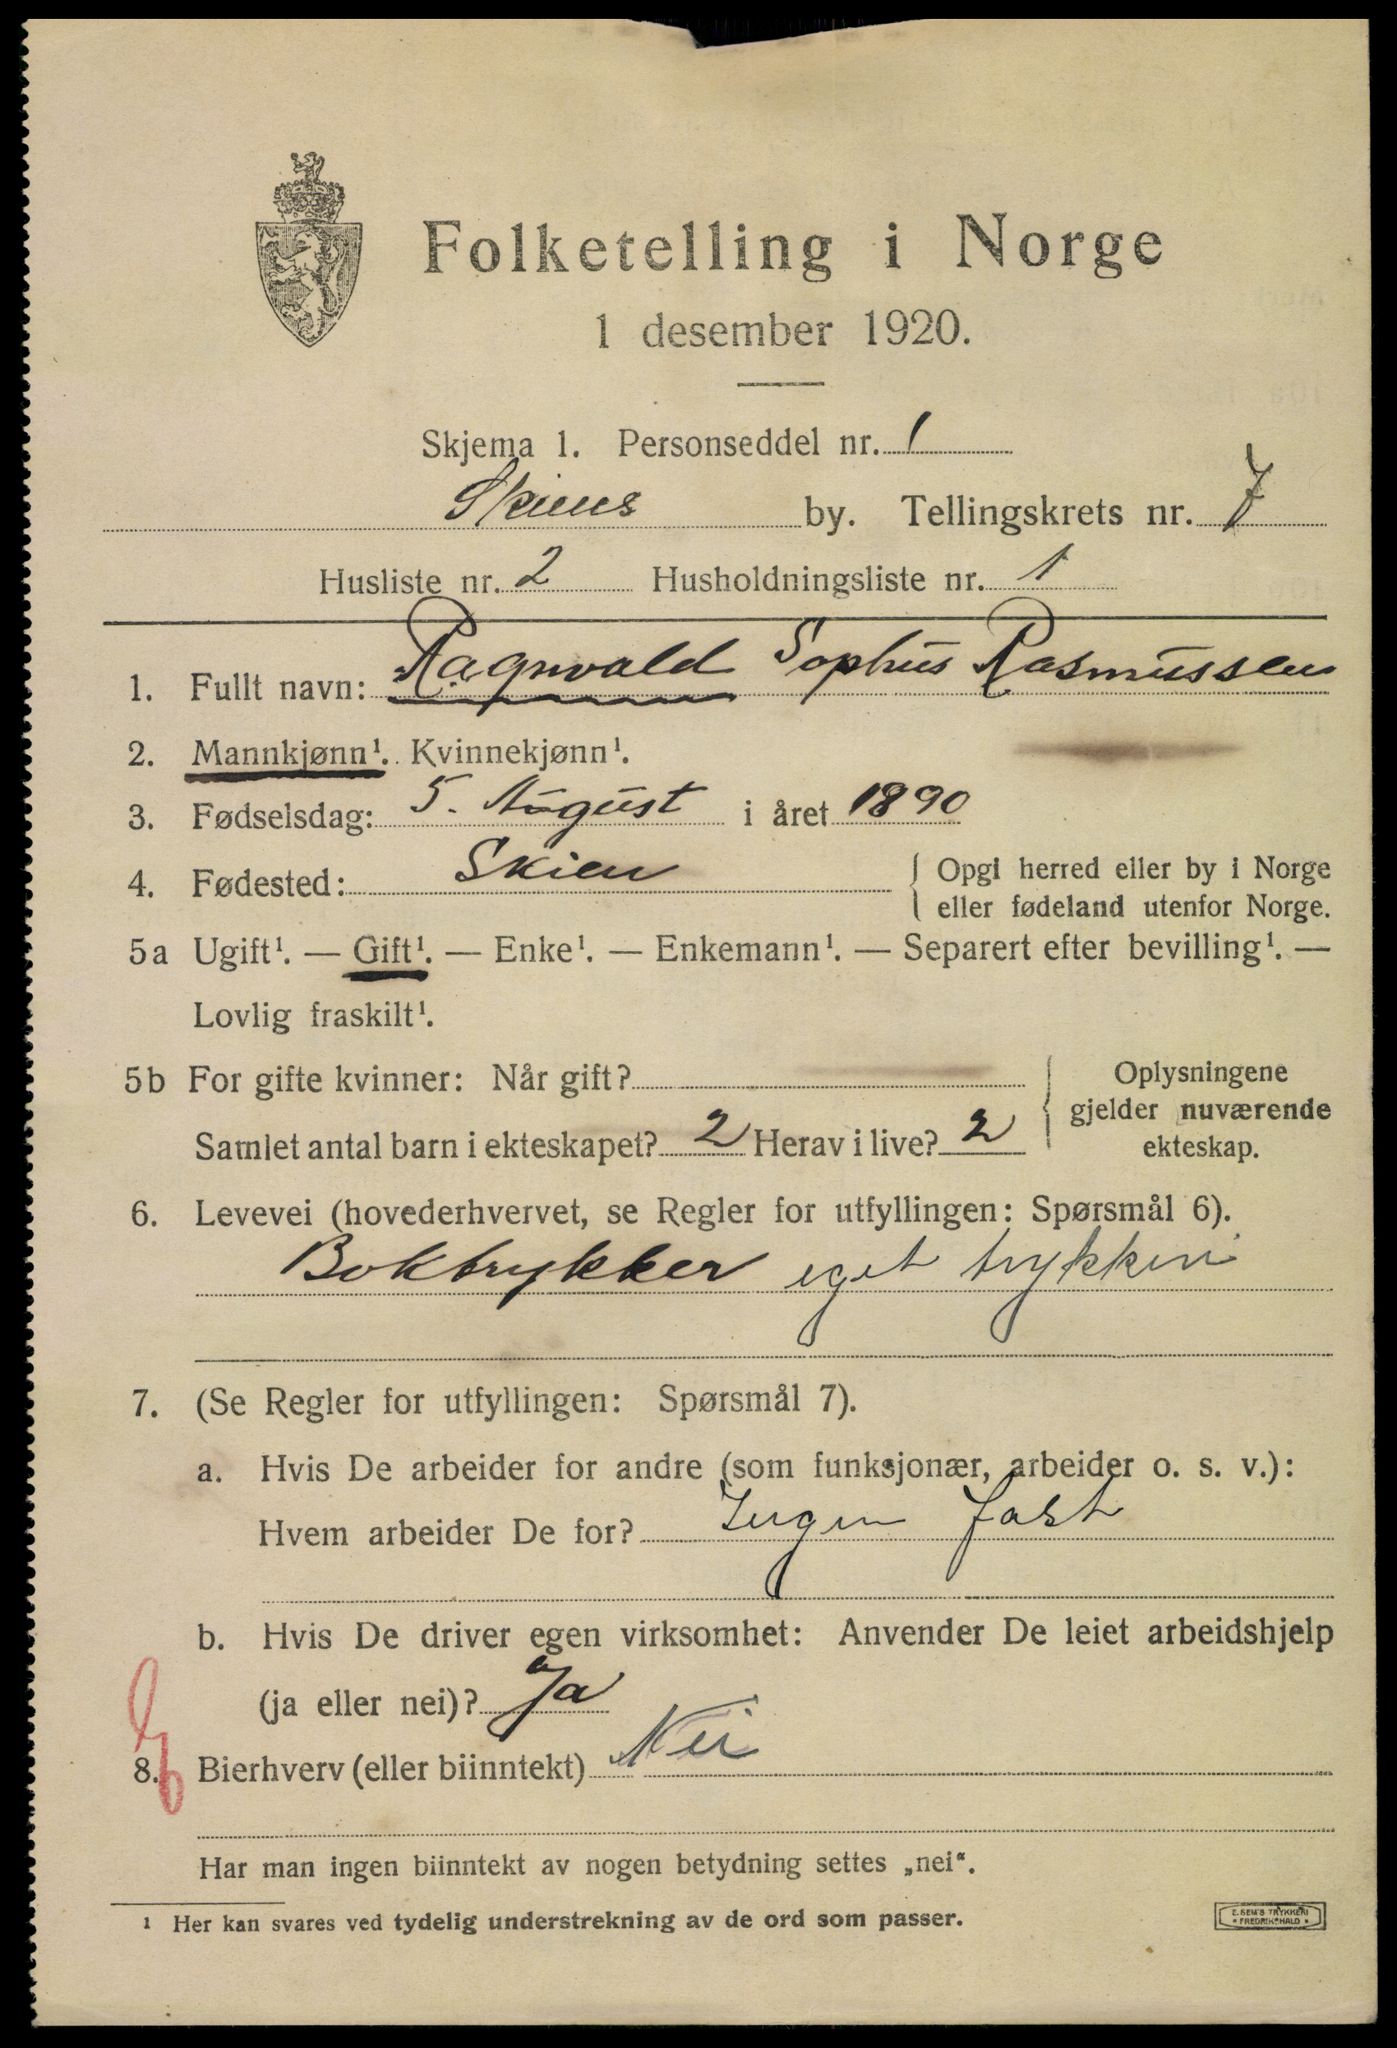 Folketelling i Norge
1 desember 1920.
Skjema 1. Personseddel nr. 1
Skiens by. Tellingskrets nr. 7
Husliste nr. 2 Husholdningsliste nr. 1
1. Fullt navn: Ragnvald Sophus Rasmussen
2. Mannkjønn¹. Kvinnekjønn¹.
3. Fødselsdag: 5. August i året 1890
4. Fødested: Skien { Opgi herred eller by i Norge
eller fødeland utenfor Norge.
5a Ugift¹. — Gift¹. — Enke¹. — Enkemann¹. — Separert efter bevilling¹. —
Lovlig fraskilt¹.
5b For gifte kvinner: Når gift? { Oplysningene
gjelder nuværende
Samlet antal barn i ekteskapet? 2 Herav i live? 2 ekteskap.
6. Levevei (hovederhvervet, se Regler for utfyllingen: Spørsmål 6).
Boktrykker eget trykkeri
7. (Se Regler for utfyllingen: Spørsmål 7).
a. Hvis De arbeider for andre (som funksjonær, arbeider o. s. v.):
Hvem arbeider De for? Ingen fast
b. Hvis De driver egen virksomhet: Anvender De leiet arbeidshjelp
(ja eller nei)? Ja
8. Bierhverv (eller biinntekt) Nei
Har man ingen biinntekt av nogen betydning settes „nei“.
¹ Her kan svares ved tydelig understrekning av de ord som passer.
E. SEM'S TRYKKERI
* FREDRIKSHALD *